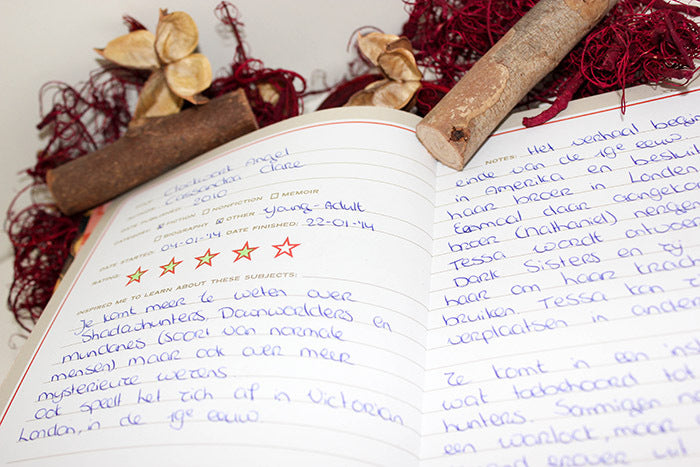 Clockwork Angel
Cassandra Clare
DATE PUBLISHED: 2010
CATEGORY: FICTION NONFICTION MEMOIR
BIOGRAPHY OTHER Young-Adult
DATE STARTED: 04-01-'14 DATE FINISHED: 22-01-'14
RATING:
INSPIRED ME TO LEARN ABOUT THESE SUBJECTS:
Je komt meer te weten over
Shadowhunters, Downworlders en
mundanes (soort van normale
mensen) maar ook over meer
mysterieuze wezens.
Ook speelt het zich af in Victorian
London, in de 19e eeuw.
NOTES: Het verhaal begin
einde van de 19e eeuw
in Amerika en besluit
haar broer in Londen
Eenmaal daar aangeko
broer (Nathaniel) nergen
Tessa wordt
Dark Sisters en zij
haar om haar krach
bruiken. Tessa kan z
verplaatsen in ander
Ze komt in een inst
wat toebehoord tot
hunters. Sommigen
een warlock, maar
wil